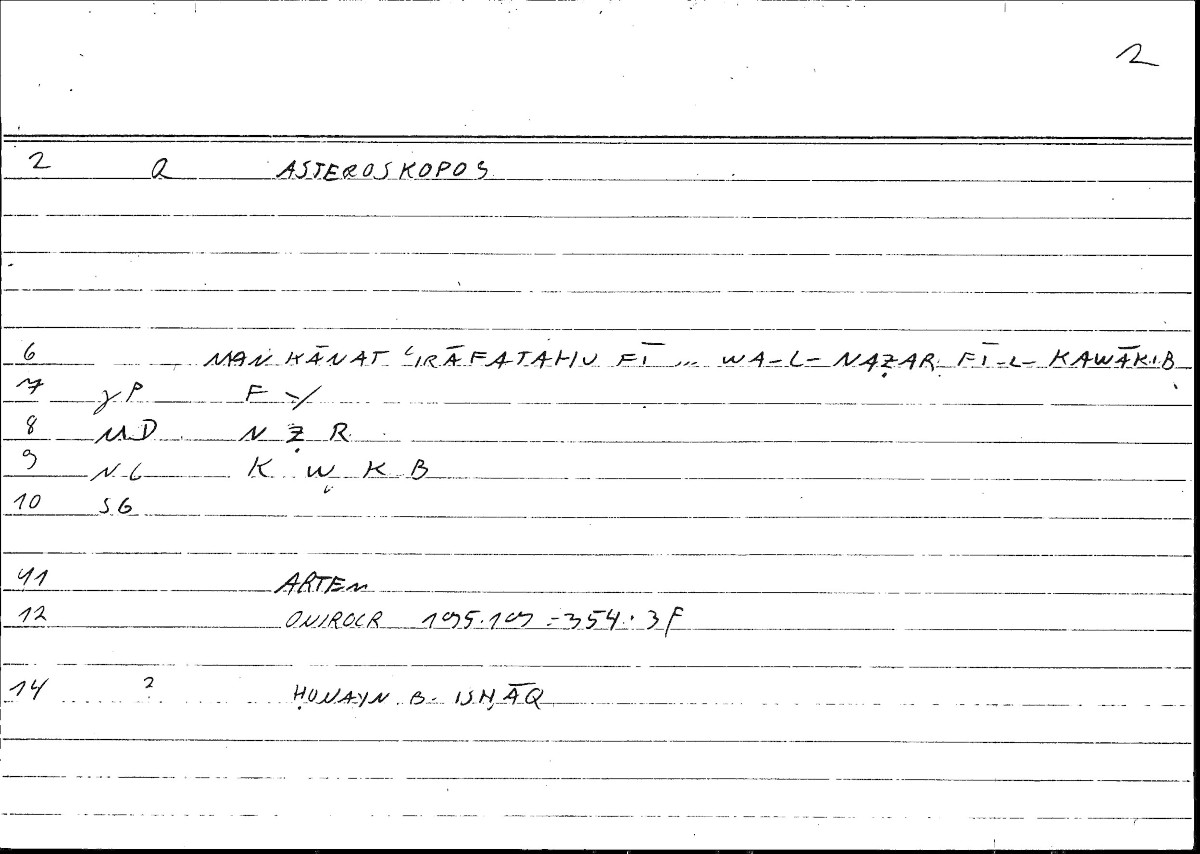 2
2 Q ASTEROSKOPOS
6 MAN KĀNAT ʿIRĀFATAHU FĪ ... WA-L-NAẒAR FĪ-L-KAWĀKIB
7 P F
8 MD N Ẓ R
9 NL K W K B
10 SG
11 ARTEM
12 ONIROCR 195.19 = 354.3F
14 2 ḤUNAYN B. ISḤĀQ